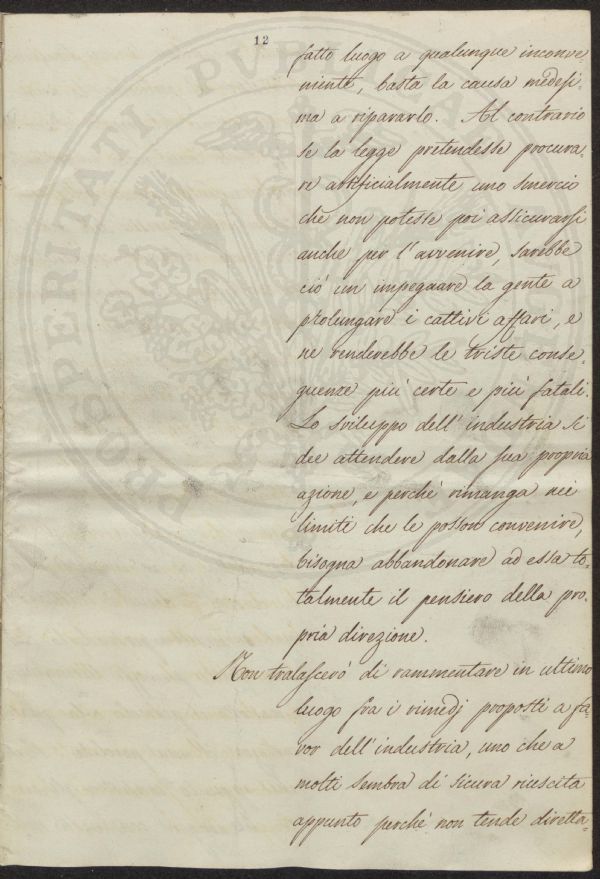 12
fatto luogo a qualunque inconve,
niente, basta la causa medesi-
ma a ripararlo. Al contrario
se la legge pretendesse procura-
re artificialmente uno smercio
che non potesse poi assicurarsi
anche per l'avvenire, sarebbe
ciò un impegnare la gente a
prolungare i cattivi affari, e
ne renderebbe le triste conse-
guenze più certe e più fatali.
Lo sviluppo dell'industria si
dee attendere dalla sua propria
azione, e perchè rimanga nei
limiti che le posson convenire,
bisogna abbandonare ad essa to-
talmente il pensiero della pro-
pria direzione.
Non tralascerò di rammentare in ultimo
luogo fra i rimedj proposti a fa-
vor dell'industria, uno che a
molti sembra di sicura riuscita
appunto perchè non tende diretta-
PROSPERITATI PUBLICAE